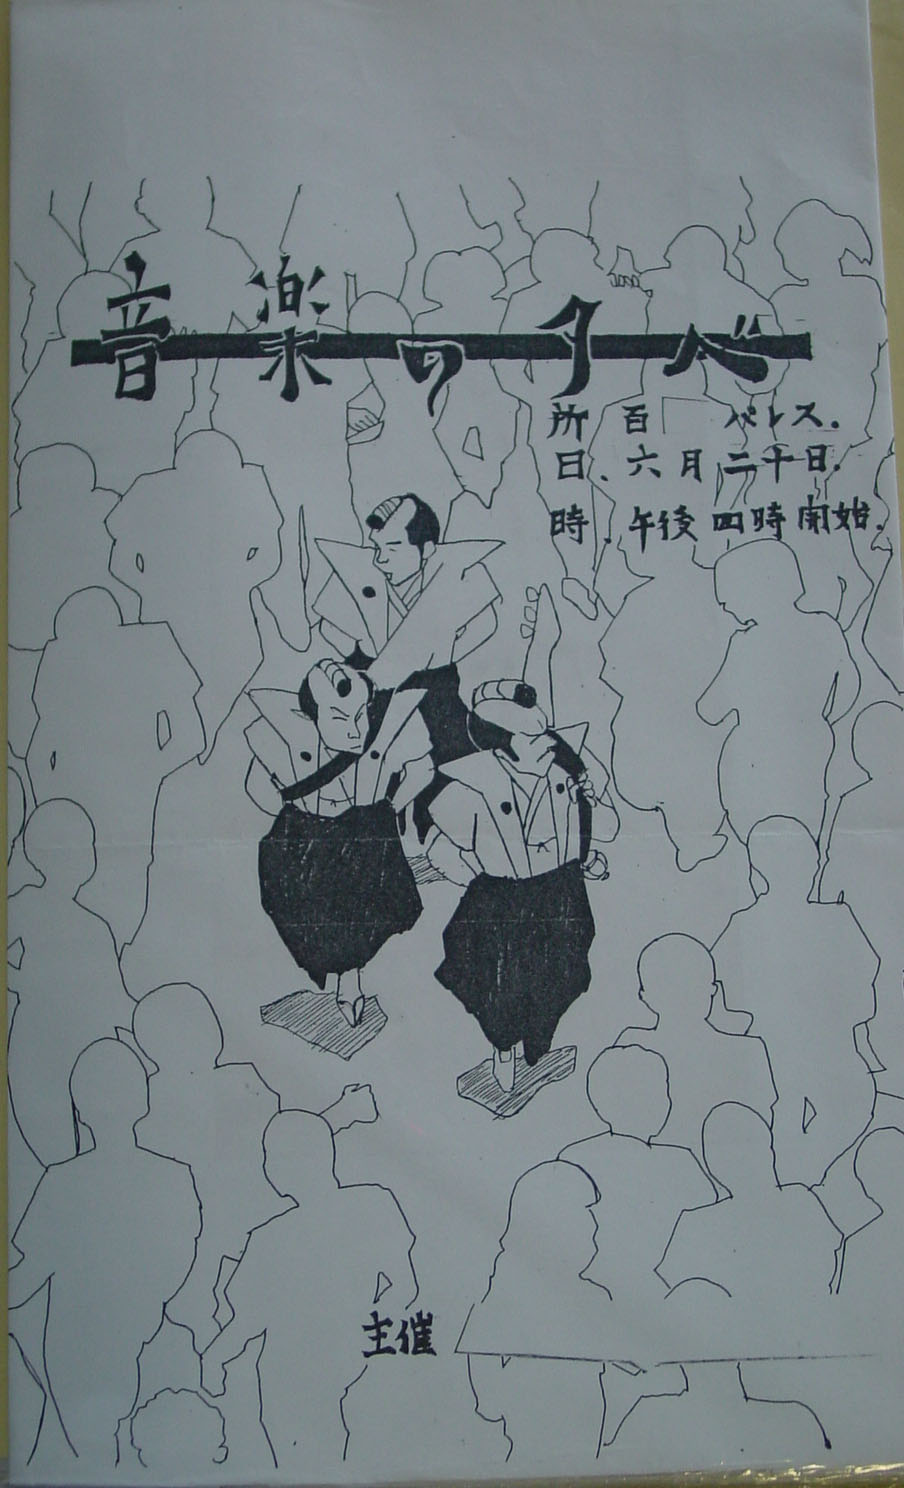 音楽の夕べ
所 百 パレス.
日、六月二十日.
時、午後四時開始.
主催